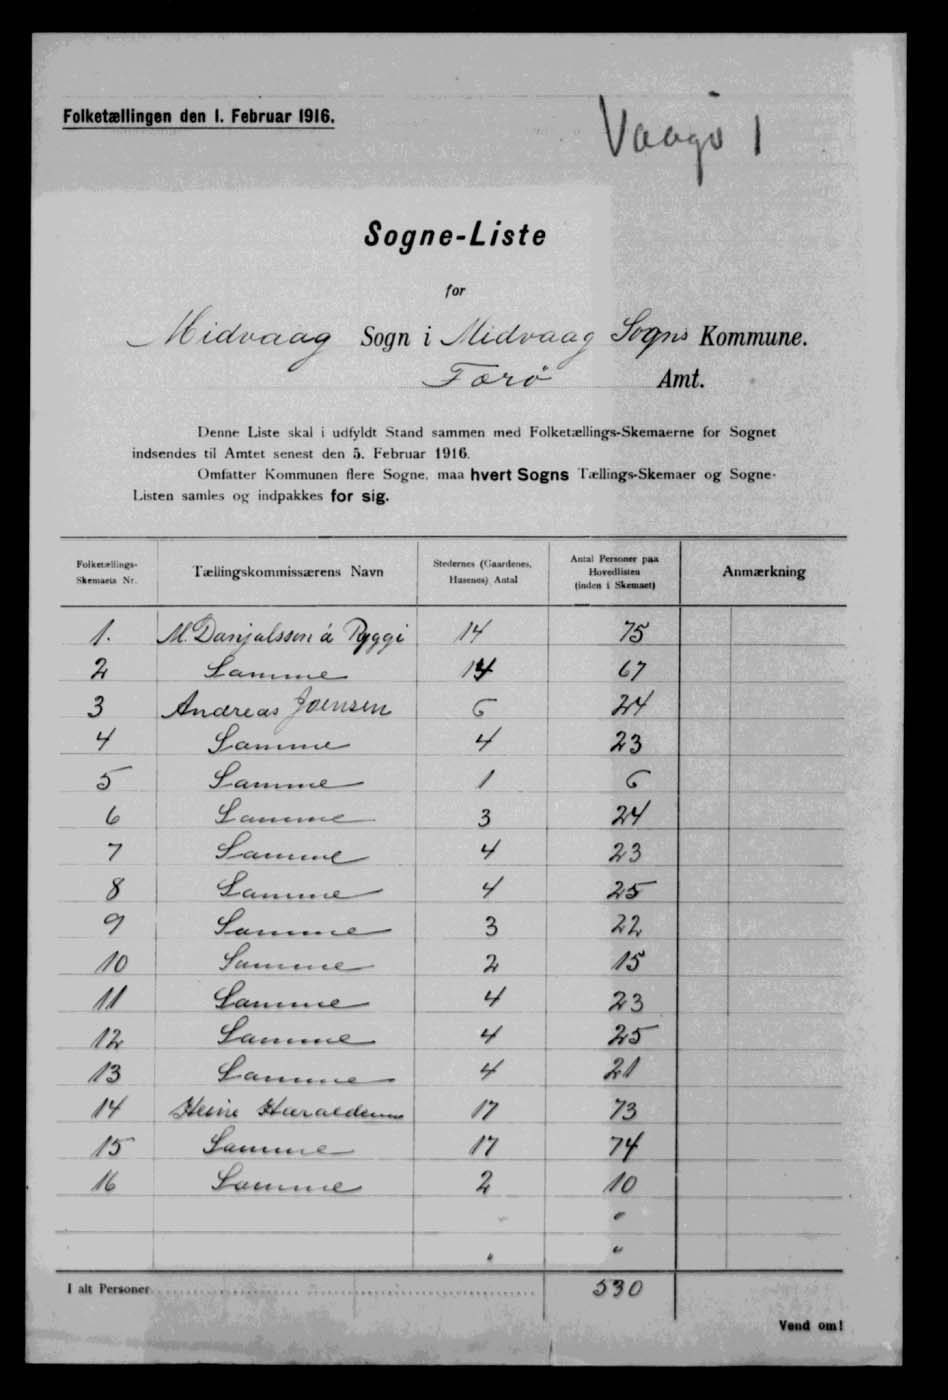 Folketællingen den 1. Februar 1916.
Vaagø 1
Sogne-Liste
for
Midvaag Sogn i Midvaag Sogns Kommune.
Færø Amt.
Denne Liste skal i udfyldt Stand sammen med Folketællings-Skemaerne for Sognet
indsendes til Amtet senest den 5. Februar 1916.
Omfatter Kommunen flere Sogne, maa hvert Sogns Tællings-Skemaer og Sogne-
Listen samles og indpakkes for sig.
Folketællings-Skemaets Nr. Tællingskommissærens Navn Stedernes (Gaardenes, Husenes) Antal Antal Personer paa Hovedlisten (inden i Skemaet) Anmærkning
1. M. Danjalsson á Ryggi 14 75
2 Samme 14 67
3 Andreas Joensen 6 24
4 Samme 4 23
5 Samme 1 6
6 Samme 3 24
7 Samme 4 23
8 Samme 4 25
9 Samme 3 22
10 Samme 2 15
11 Samme 4 23
12 Samme 4 25
13 Samme 4 21
14 Heine 17 73
15 Samme 17 74
16 Samme 2 10
"
" "
I alt Personer 530
Vend om!